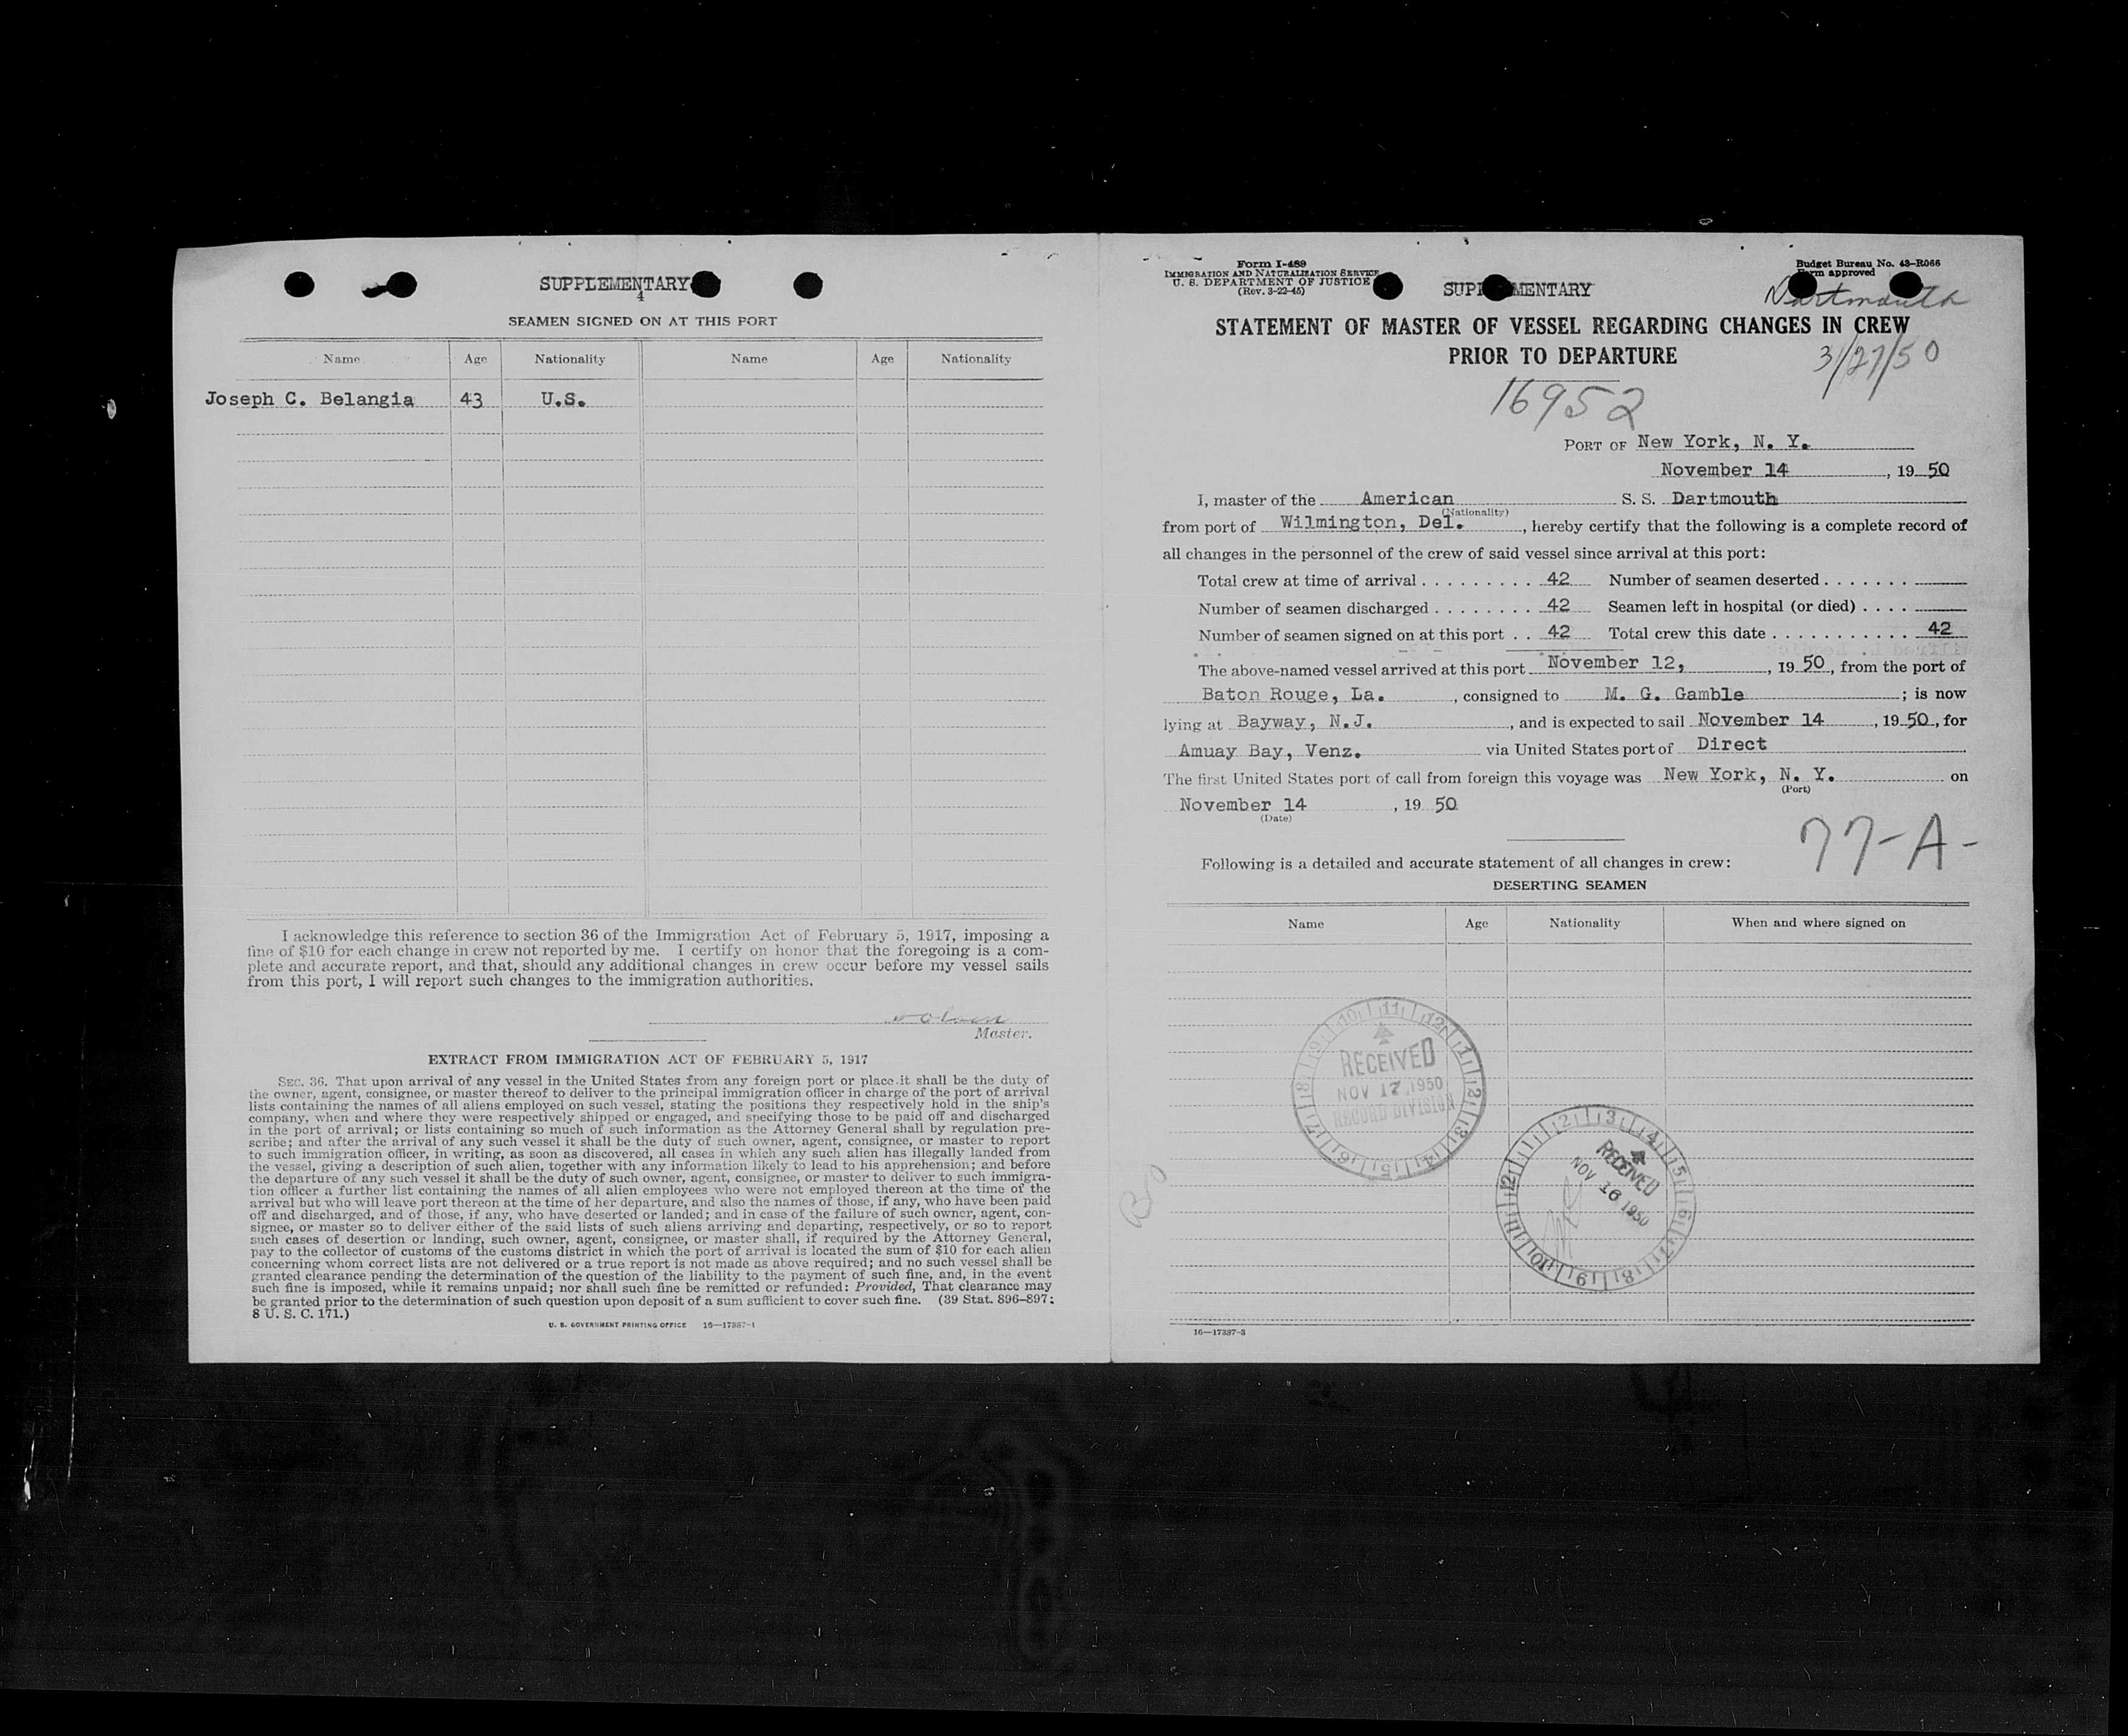 SUPPLEMENTARY
4
SEAMEN SIGNED ON AT THIS PORT
Name Age Nationality Name Age Nationality
Joseph C. Belangia 43 U.S.
I acknowledge this reference to section 36 of the Immigration Act of February 5, 1917, imposing a
fine of $10 for each change in crew not reported by me. I certify on honor that the foregoing is a com-
plete and accurate report, and that, should any additional changes in crew occur before my vessel sails
from this port, I will report such changes to the immigration authorities.
Master.
EXTRACT FROM IMMIGRATION ACT OF FEBRUARY 5, 1917
SEC. 36. That upon arrival of any vessel in the United States from any foreign port or place it shall be the duty of
the owner, agent, consignee, or master thereof to deliver to the principal immigration officer in charge of the port of arrival
lists containing the names of all aliens employed on such vessel, stating the positions they respectively hold in the ship's
company, when and where they were respectively shipped or engaged, and specifying those to be paid off and discharged
in the port of arrival; or lists containing so much of such information as the Attorney General shall by regulation pre-
scribe; and after the arrival of any such vessel it shall be the duty of such owner, agent, consignee, or master to report
to such immigration officer, in writing, as soon as discovered, all cases in which any such alien has illegally landed from
the vessel, giving a description of such alien, together with any information likely to lead to his apprehension; and before
the departure of any such vessel it shall be the duty of such owner, agent, consignee, or master to deliver to such immigra-
tion officer a further list containing the names of all alien employees who were not employed thereon at the time of the
arrival but who will leave port thereon at the time of her departure, and also the names of those, if any, who have been paid
off and discharged, and of those, if any, who have deserted or landed; and in case of the failure of such owner, agent, con-
signee, or master so to deliver either of the said lists of such aliens arriving and departing, respectively, or so to report
such cases of desertion or landing, such owner, agent, consignee, or master shall, if required by the Attorney General,
pay to the collector of customs of the customs district in which the port of arrival is located the sum of $10 for each alien
concerning whom correct lists are not delivered or a true report is not made as above required; and no such vessel shall be
granted clearance pending the determination of the question of the liability to the payment of such fine, and, in the event
such fine is imposed, while it remains unpaid; nor shall such fine be remitted or refunded: Provided, That clearance may
be granted prior to the determination of such question upon deposit of a sum sufficient to cover such fine. (39 Stat. 896–897;
8 U. S. C. 171.)
U. S. GOVERNMENT PRINTING OFFICE 16—17387-1
Form I-489
IMMIGRATION AND NATURALIZATION SERVICE
U. S. DEPARTMENT OF JUSTICE
(Rev. 3-22-45)
SUPPLEMENTARY
Budget Bureau No. 43-R066
Form approved
Dartmouth
STATEMENT OF MASTER OF VESSEL REGARDING CHANGES IN CREW
PRIOR TO DEPARTURE
3/27/50
16952
PORT OF New York, N. Y.
November 14, 19 50
I, master of the American S. S. Dartmouth
(Nationality)
from port of Wilmington, Del., hereby certify that the following is a complete record of
all changes in the personnel of the crew of said vessel since arrival at this port:
Total crew at time of arrival . . . . . . . . . 42 Number of seamen deserted . . . . . . .
Number of seamen discharged . . . . . . . . 42 Seamen left in hospital (or died) . . . .
Number of seamen signed on at this port . . 42 Total crew this date . . . . . . . . . . . 42
The above-named vessel arrived at this port November 12, , 19 50, from the port of
Baton Rouge, La., consigned to M. G. Gamble; is now
lying at Bayway, N.J., and is expected to sail November 14, 19 50, for
Amuay Bay, Venz. via United States port of Direct
The first United States port of call from foreign this voyage was New York, N. Y. on
(Port)
November 14, 19 50
(Date)
77-A-
Following is a detailed and accurate statement of all changes in crew:
DESERTING SEAMEN
Name Age Nationality When and where signed on
RECEIVED
NOV 17 1950
RECORD DIVISION
RECEIVED
NOV 16 1950
16—17387-3